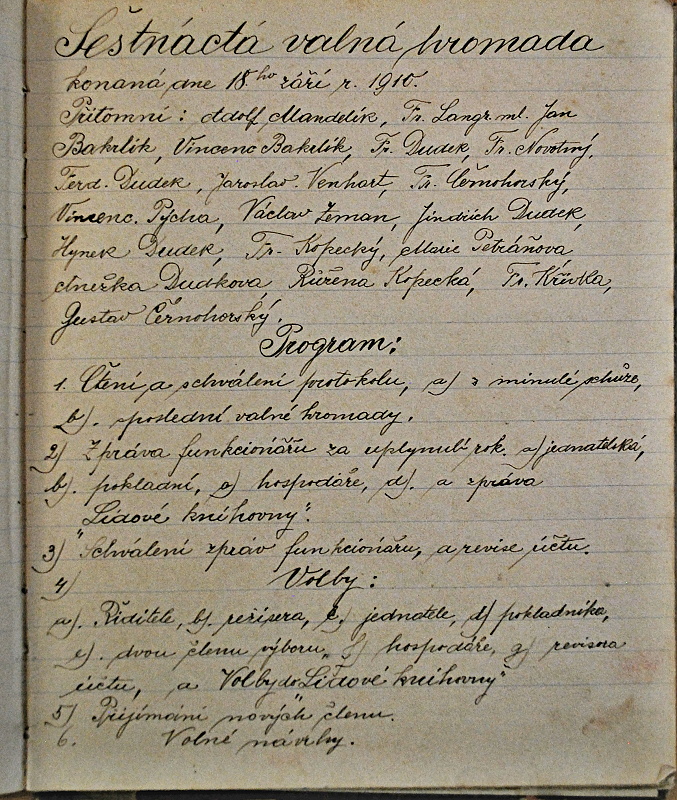 Šestnáctá valná hromada
konaná dne 18.ho září r. 1910.
Přítomní: Adolf Mandelík, Fr. Langr ml. Jan
Bakrlík, Vincenc Bakrlík, Fr. Dudek, Fr. Novotný,
Ferd. Dudek, Jaroslav Venhart, Fr. Černohorský,
Vincenc. Pýcha, Václav Zeman, Jindřich Dudek,
Hynek Dudek, Fr. Kopecký, Marie Petráňova
Anežka Dudkova Růžena Kopecká, Fr. Křivka,
Gustav Černohorský.
Program:
1. Čtení a schválení protokolu, a) z minulé schůze,
b). poslední valné hromady.
2) Zpráva funkcionářu za uplynulí rok. a) jednatelská,
b). pokladní, c) hospodáře, d). a zpráva
„Lidové knihovny".
3) Schválení zpráv funkcionářu, a revise účtu.
4) Volby:
a). Řiditele, b). režisera, c) jednatele, d) pokladníka,
e). dvou členu výboru, f) hospodáře, g) revisora
účtu, a Volby do „Lidové knihovny"
5) Přijímání nových členu.
6. Volné návrhy.